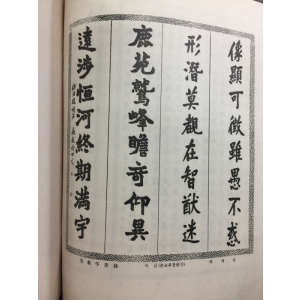 像顯可徵雖愚不惑
形潛莫覩在智猷迷
鹿苑鷲峰瞻奇仰異
遠涉恒河終期滿字